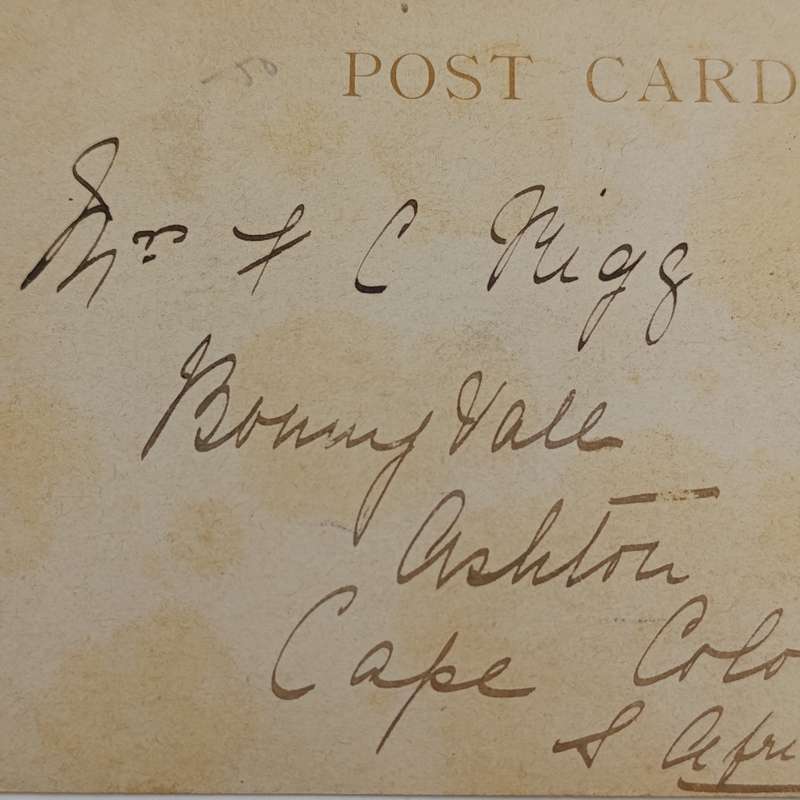 POST CARD
Mrs F C Rigg
Bonny Vall
Ashton
Cape Colo
S Afri